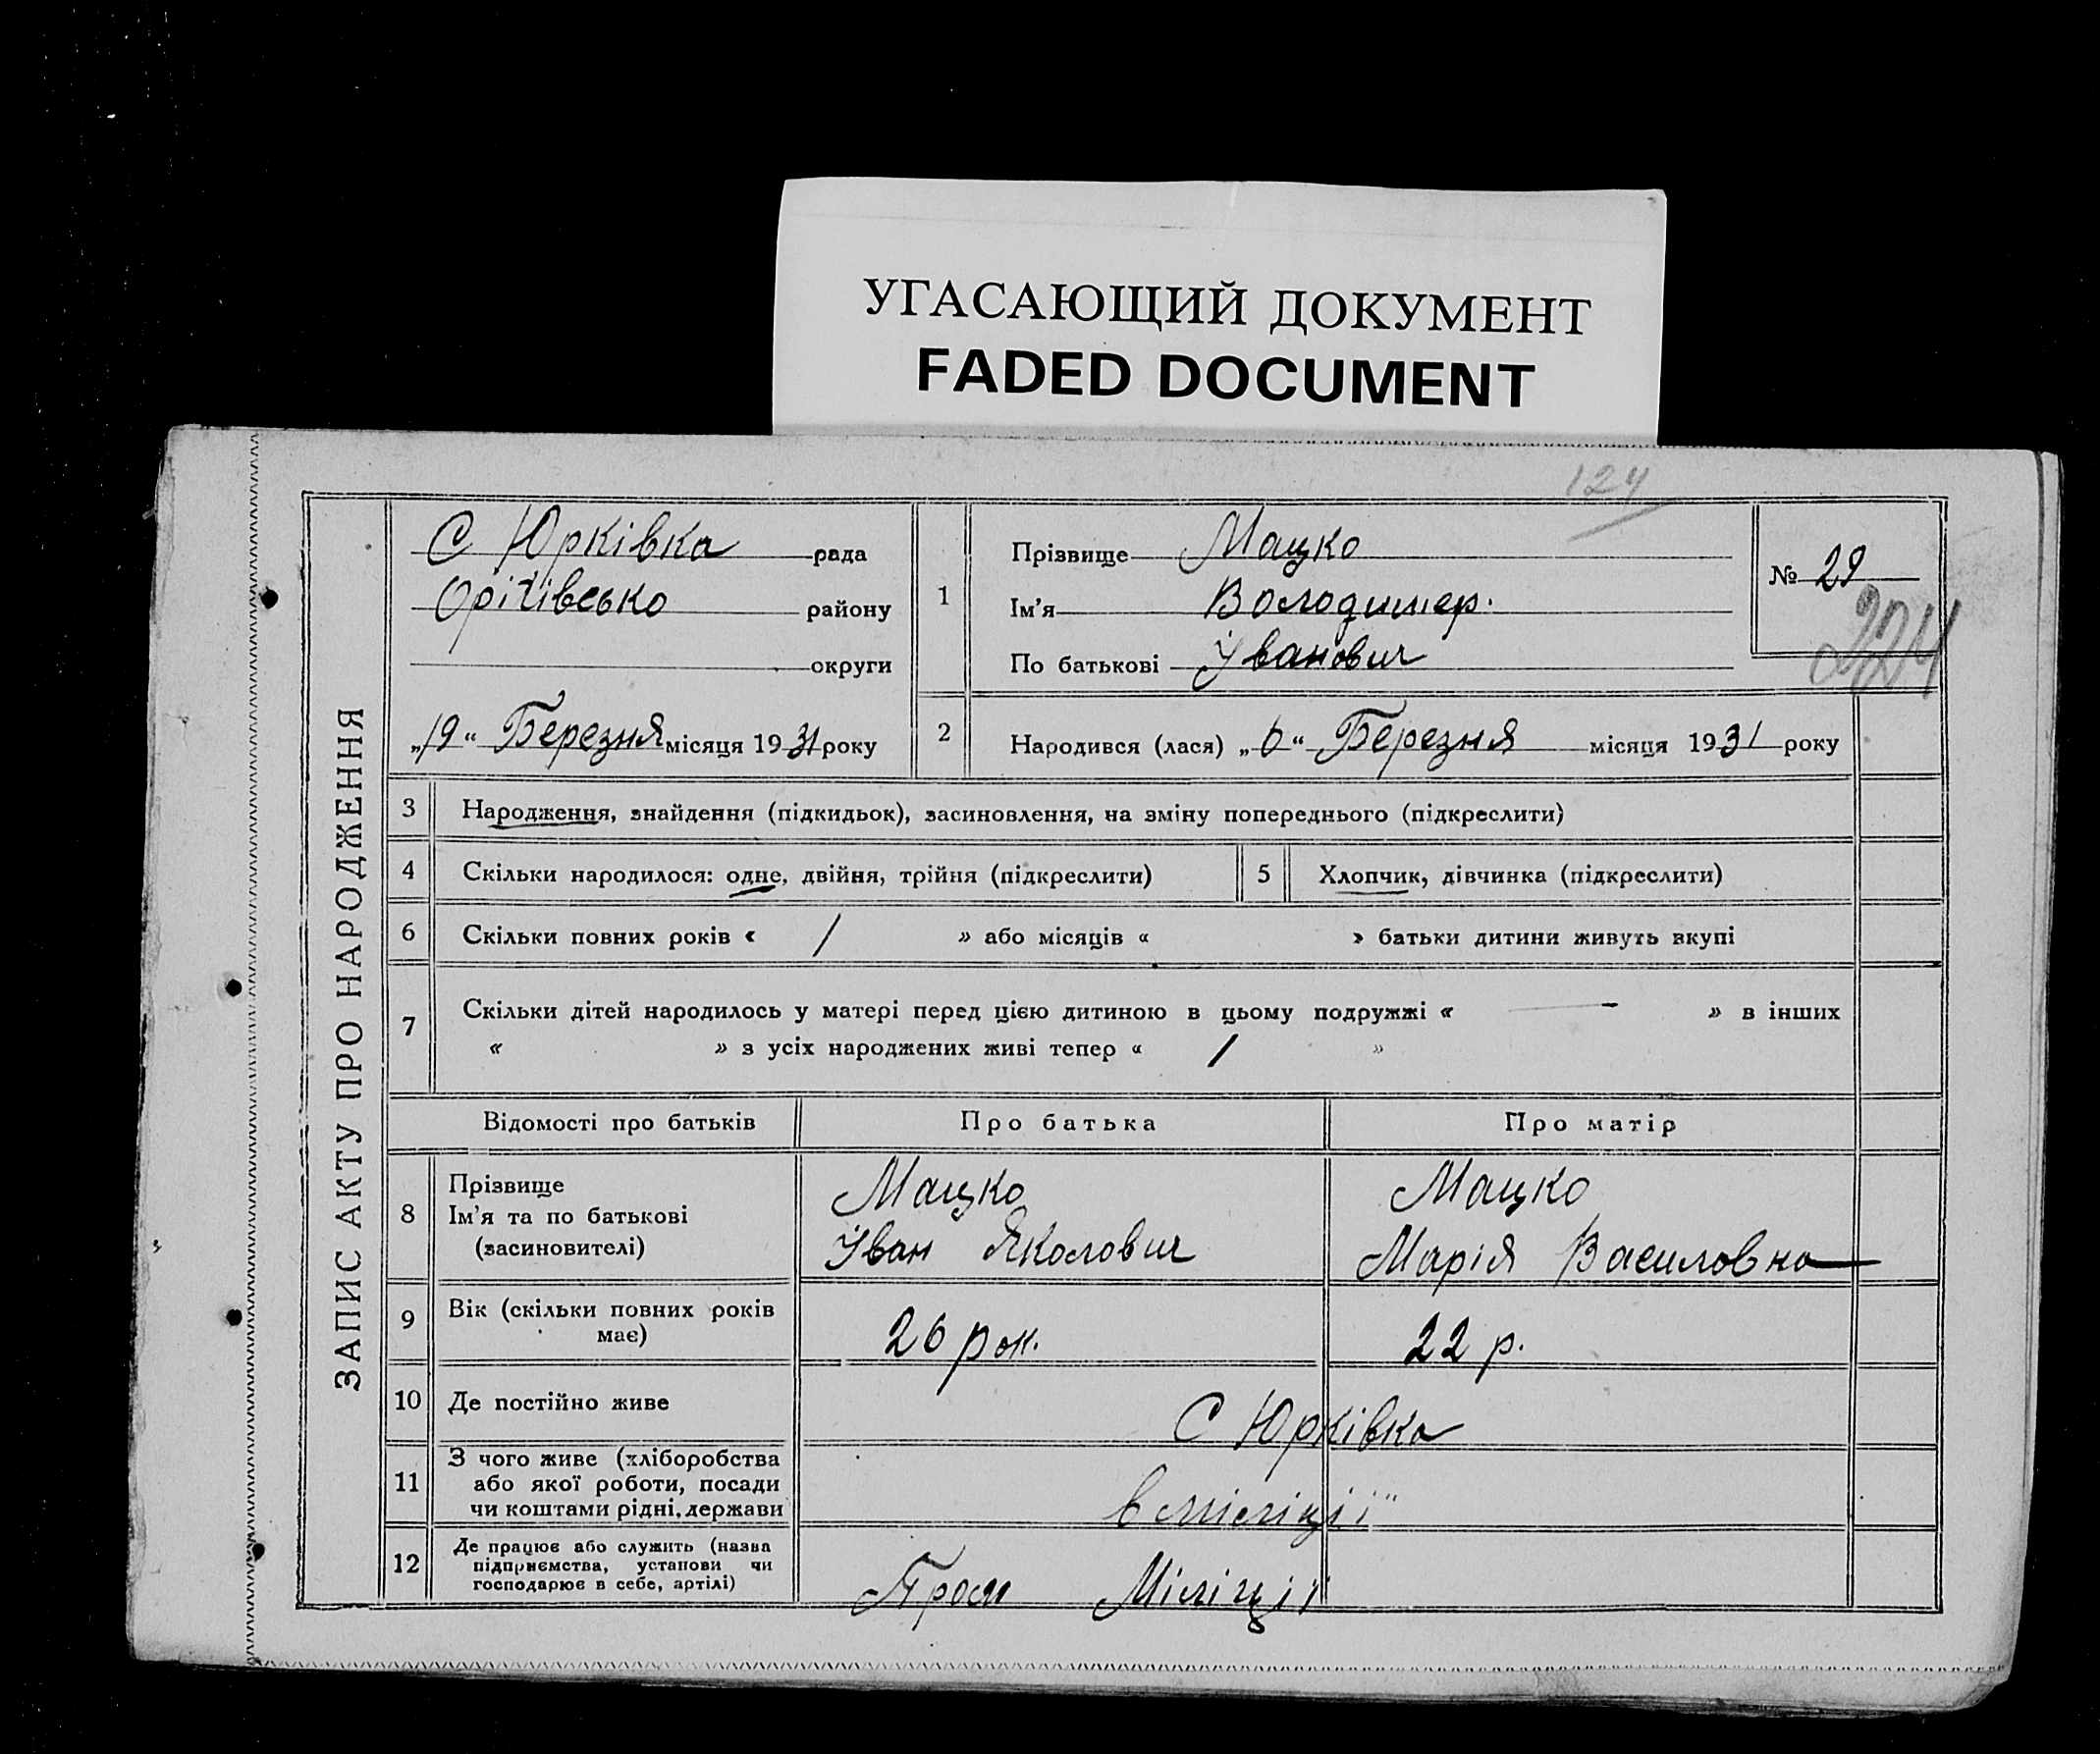 УГАСАЮЩИЙ ДОКУМЕНТ
FADED DOCUMENT
124
ЗАПИС АКТУ ПРО НАРОДЖЕННЯ
С Юрківка рада
Оріхівсько району
округи
„19“ Березня місяця 1931 року
1
Прізвище Мацко
Ім'я Володимер.
По батькові Іванович
№ 29
224
2 Народився (лася) „6“ Березня місяця 1931 року
3 Народження, знайдення (підкидьок), засиновлення, на зміну попереднього (підкреслити)
4 Скільки народилося: одне, двійня, трійня (підкреслити)
5 Хлопчик, дівчинка (підкреслити)
6 Скільки повних років « / » або місяців « » батьки дитини живуть вкупі
7 Скільки дітей народилось у матері перед цією дитиною в цьому подружжі « — » в інших
« » з усіх народжених живі тепер « / »
Відомості про батьків Про батька Про матір
8 Прізвище
Ім'я та по батькові
(засиновителі)
Мацко
Іван Яколович
Мацко
Марія Василовна
9 Вік (скільки повних років
має)
26 рок. 22 р.
10 Де постійно живе С Юрківка
11 З чого живе (хліборобства
або якої роботи, посади
чи коштами рідні, держави
в міліції
12 Де працює або служить (назва
підприємства, установи чи
господарює в себе, артілі)
Міліції